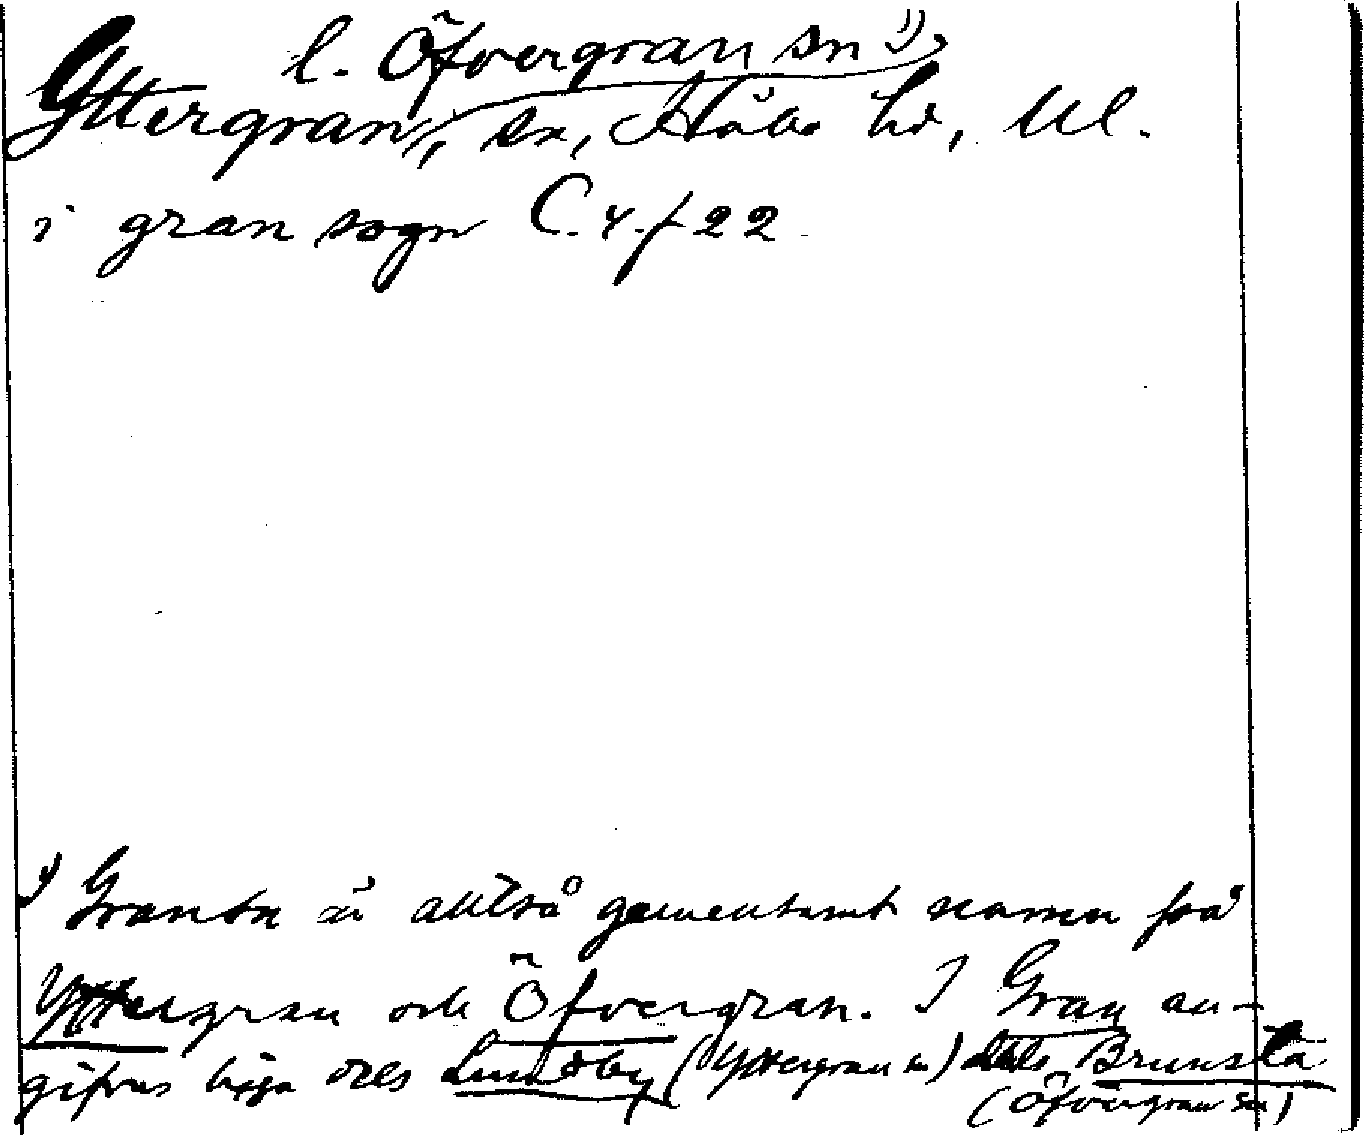 l. Öfvergran sn ¹),
Yttergran, sn, Håbo hd, Upl.
i gran sogn C. 4. f 22
¹) Gran är alltså gemensamt namn på
Yttergran och Öfvergran. I Gran an-
gifves ligga dels Lundby (Yttergran sn) dels Brunsta
(Öfvergran sn)